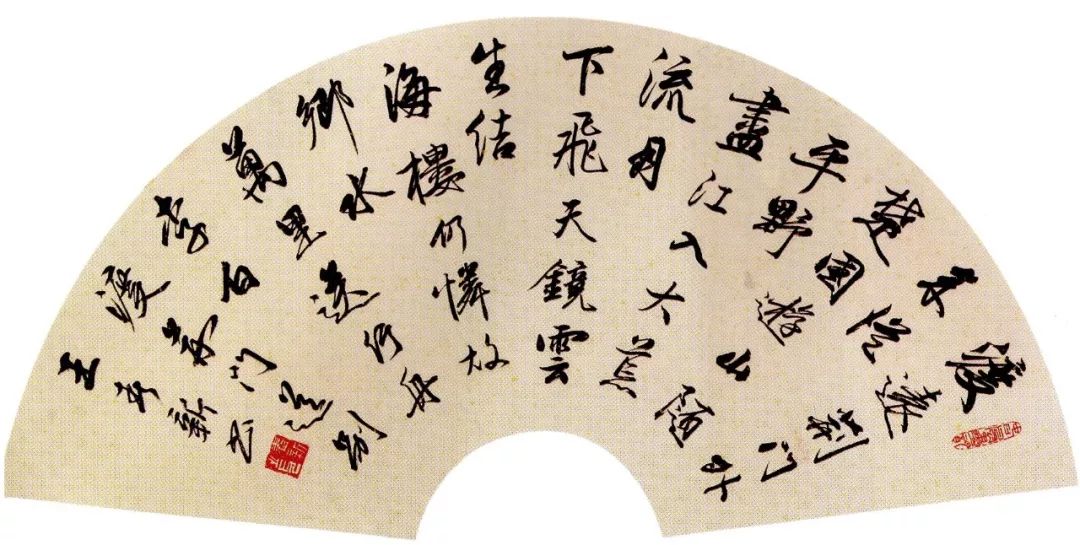 渡遠荊門外
來從
楚國遊山隨
平野
盡江入大荒
流月
下飛天鏡雲
生結
海樓仍憐故
鄉水
萬里送行舟
李白
渡荊門送別
王子新书